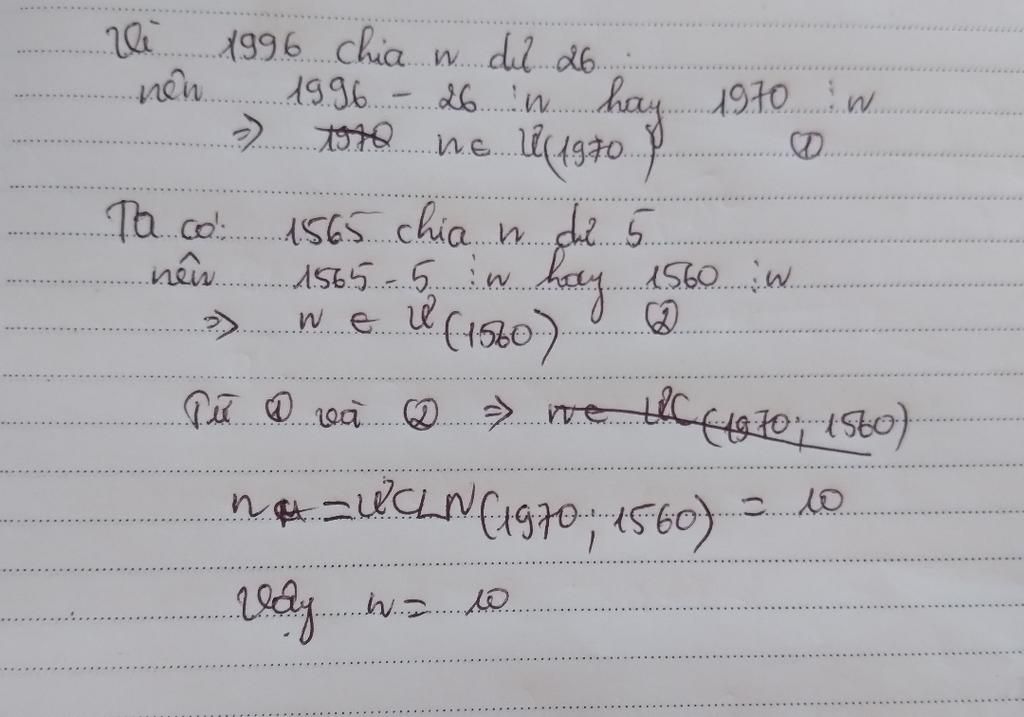 Vì 1996 chia n dư 26
nên 1996 - 26 ⋮ n hay 1970 ⋮ n
=> 1970 n ∈ Ư(1970) ①
Ta có: 1565 chia n dư 5
nên 1565 - 5 ⋮ n hay 1560 ⋮ n
=> n ∈ Ư(1560) ②
Từ ① và ② => n ∈ ƯC(1970; 1560)
n = ƯCLN(1970; 1560) = 10
Vậy n = 10